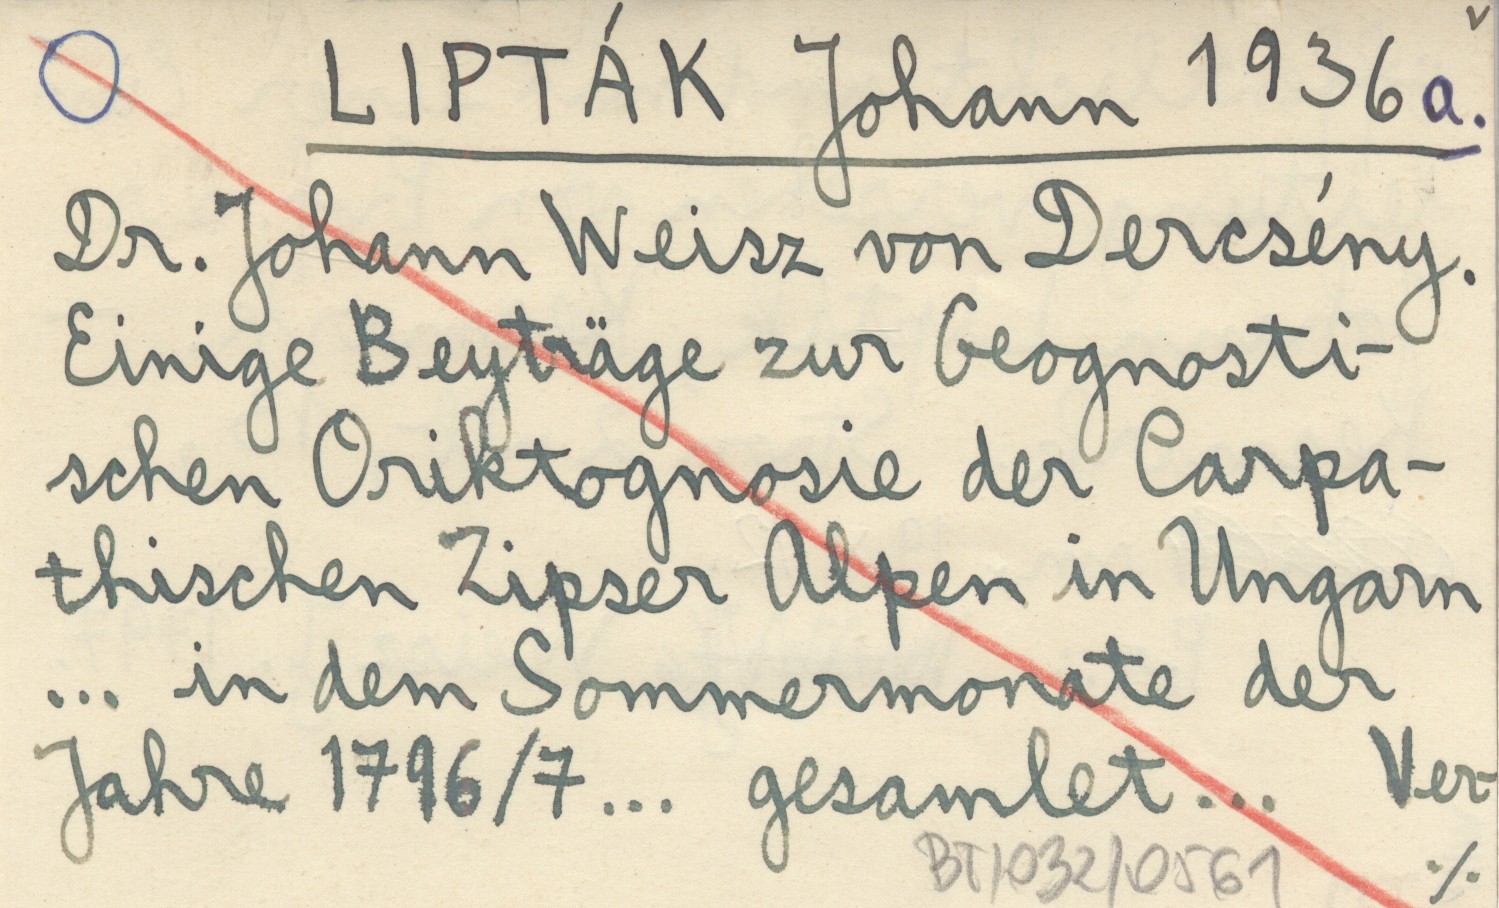 LIPTÁK Johann 1936 a.
Dr. Johann Weisz von Dercsény.
Einige Beyträge zur Geognosti-
schen Oriktognosie der Carpa-
thischen Zipser Alpen in Ungarn
... in dem Sommermonate der
Jahre 1796/7... gesamlet... Ver-
BT/032/0561
./.